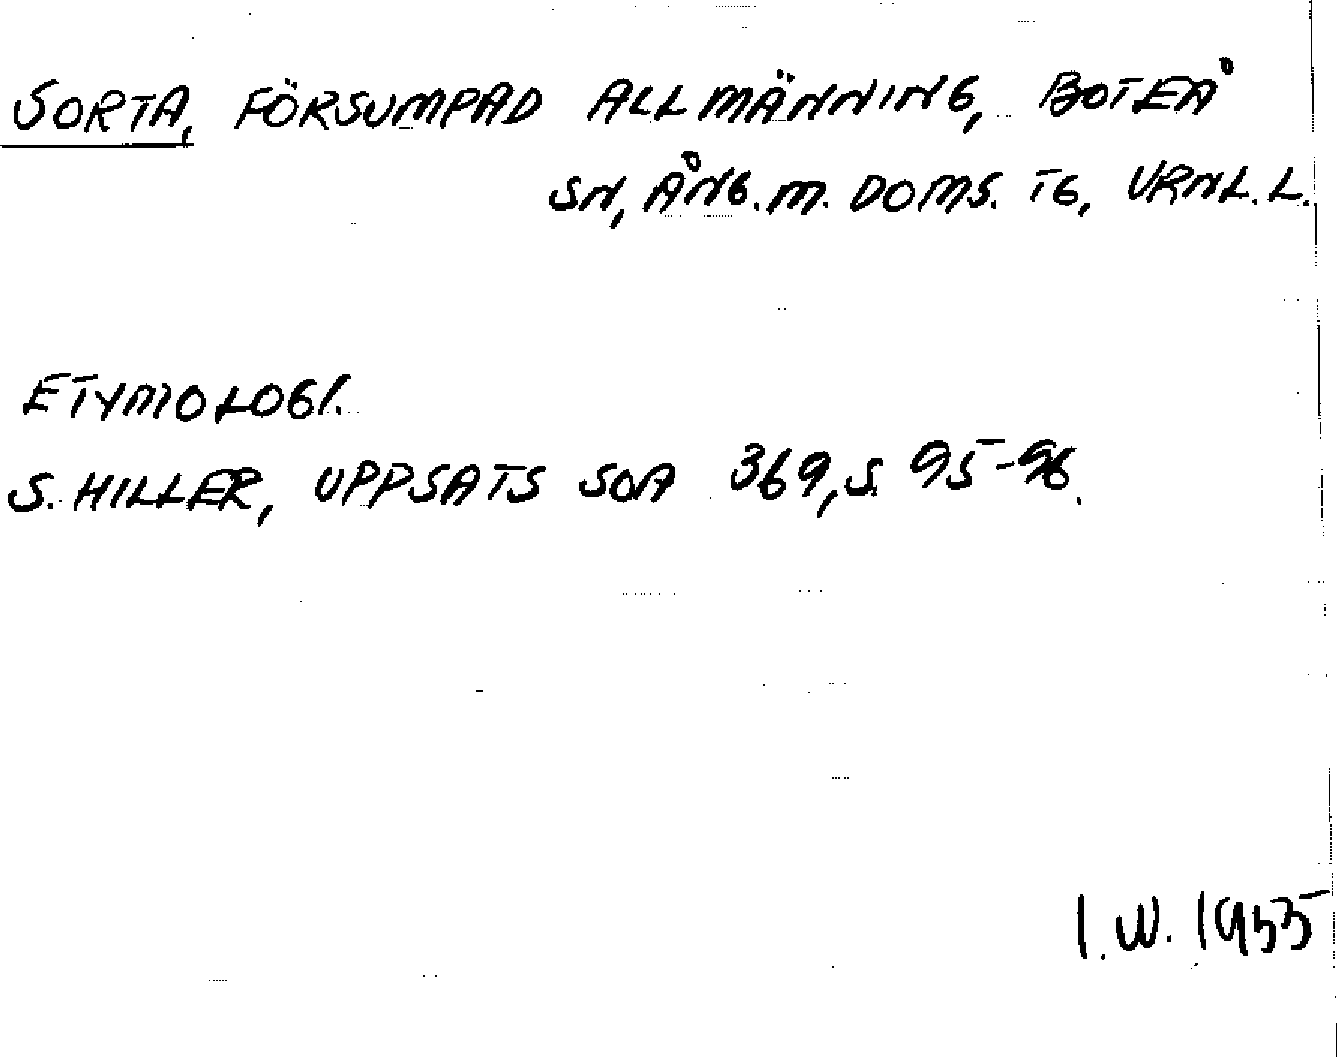 SORTA, FÖRSUMPAD ALLMÄNNING, BOTEÅ
SN, ÅNG.M. DOMS. TG, VRNL.L.
ETYMOLOGI.
S. HILLER, UPPSATS SOA 369, S. 95-96.
I.W. 1955